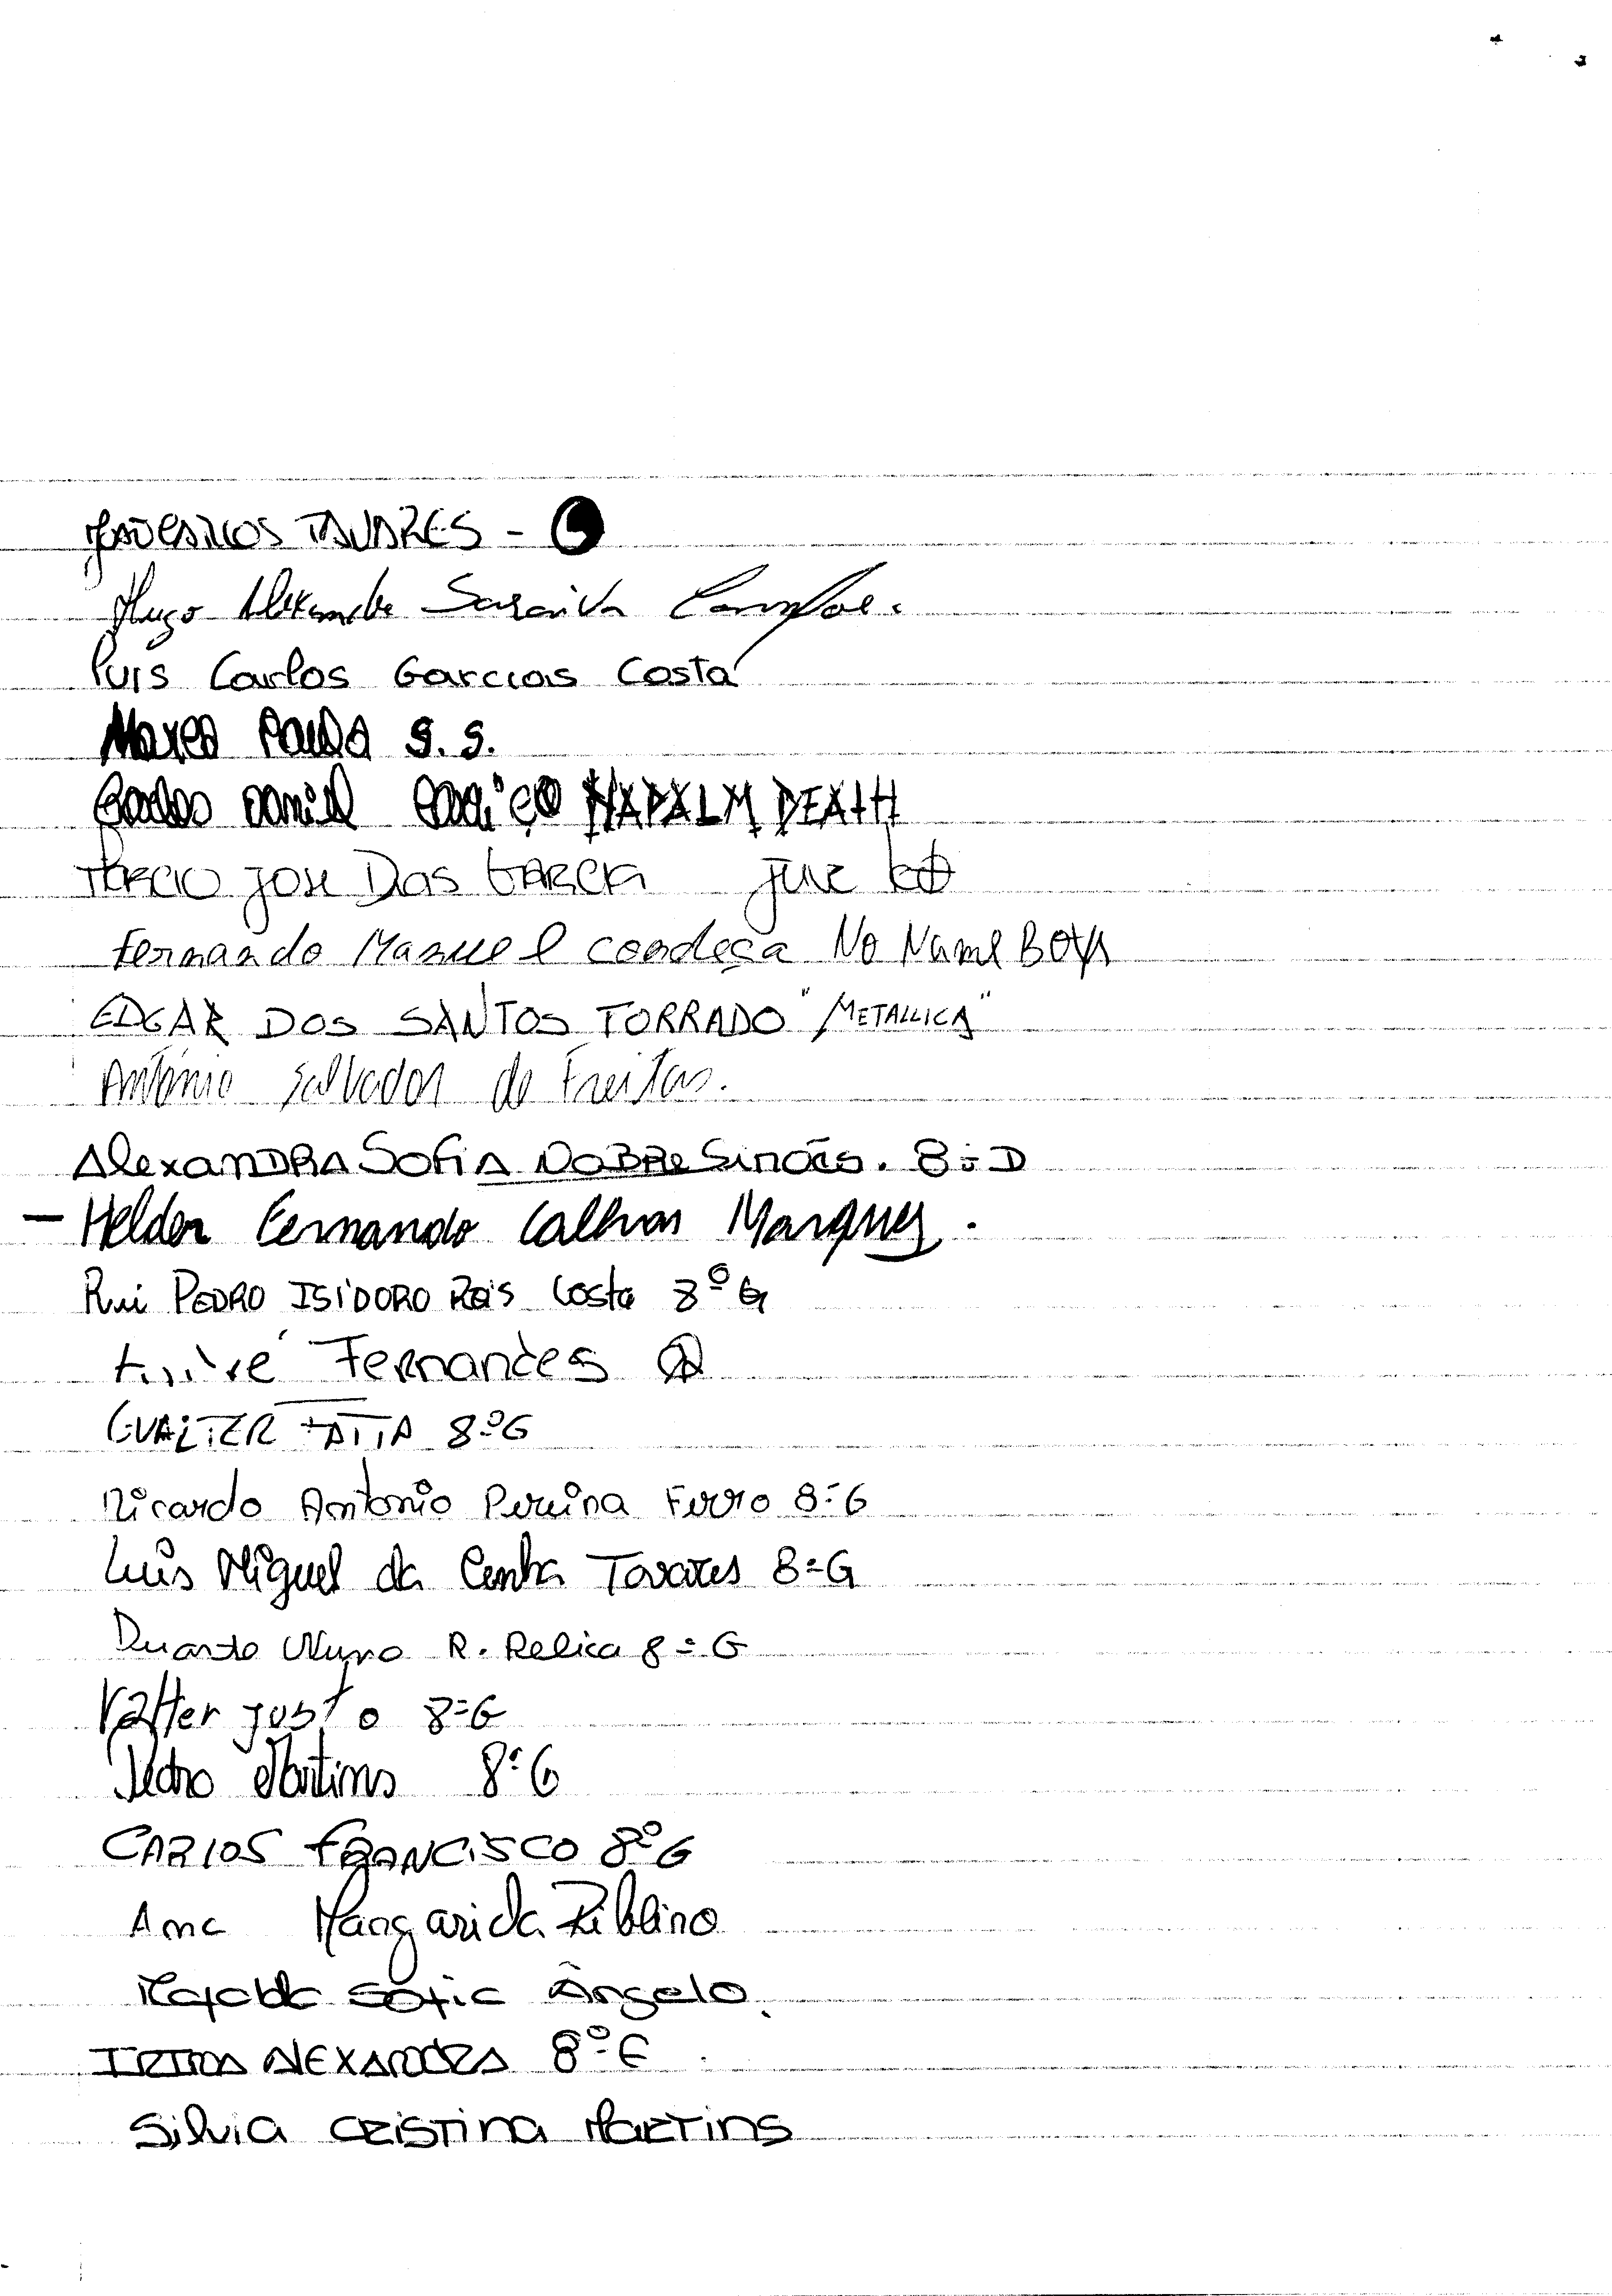 TAVARES -
Hugo Alexandre Saraiva
Luis Carlos Garcias Costa
Marco Paulo S. S.
Carlos NAPALM DEATH
JOSE DOS GARCIA
Fernando Manuel condeça No Name BOYS
EDGAR DOS SANTOS TORRADO "METALLICA"
António Salvador de Freitas.
AlexANDRA SofiA NOBRE Simões. 8º D
— Helder Fernando Calhas Marques.
Rui PEDRO ISIDORO Reis Costa 8º G
Fernandes
GUALTER 8º G
Ricardo António Pereira Ferro 8º G
Luís Miguel da Cunha Tavares 8º G
Duarte Nuno R. Relica 8º G
Valter justo 8º G
Pedro Martins 8º G
CARlOS FRANCISCO 8º G
Ana Margarida
Sofia Ângelo
AlEXANDRA 8º
Silvia CRISTINA MARTINS